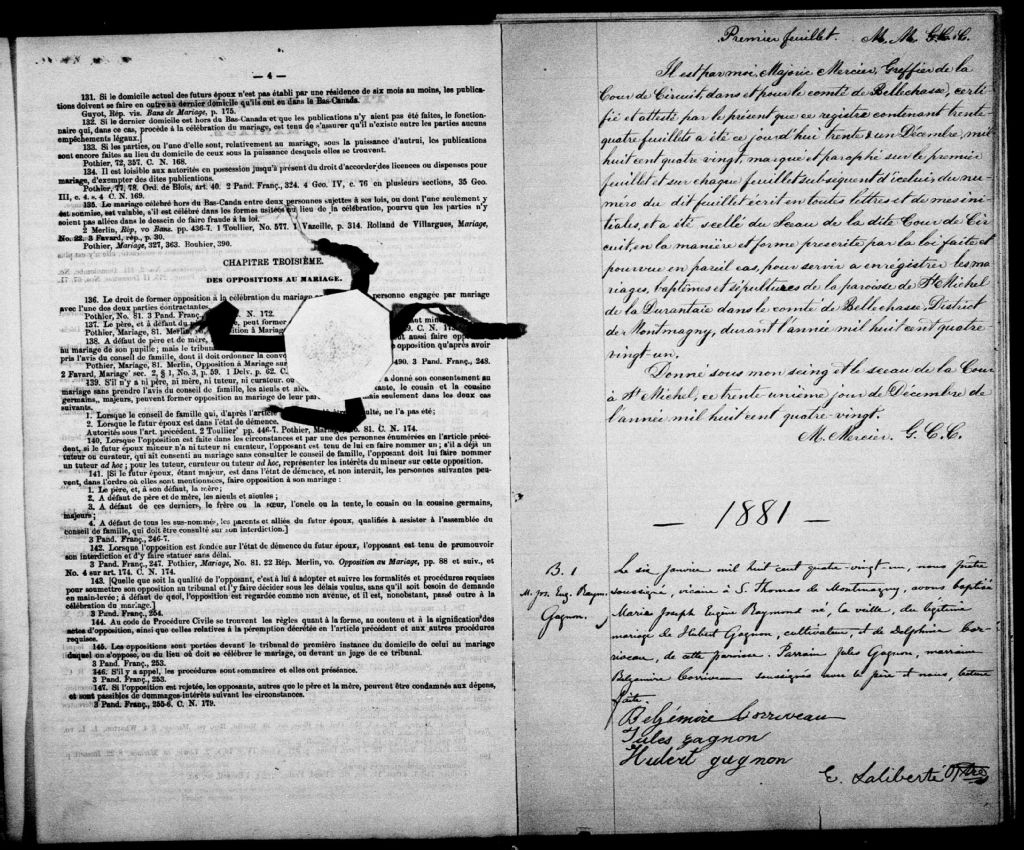 — 4 —
131. Si le domicile actuel des futurs époux n'est pas établi par une résidence de six mois au moins, les publica-
tions doivent se faire en outre au dernier domicile qu'ils ont eu dans le Bas-Canada.
Guyot, Rép. vis. Bans de Mariage, p. 175.
132. Si le dernier domicile est hors du Bas-Canada et que les publications n'y aient pas été faites, le fonction-
naire qui, dans ce cas, procède à la célébration du mariage, est tenu de s'assurer qu'il n'existe entre les parties aucuns
empêchements légaux.]
133. Si les parties, ou l'une d'elle sont, relativement au mariage, sous la puissance d'autrui, les publications
sont encore faites au lieu du domicile de ceux sous la puissance desquels elles se trouvent.
Pothier, 72, 357. C. N. 168.
134. Il est loisible aux autorités en possession jusqu'à présent du droit d'accorder des licences ou dispenses pour
mariage, d'exempter des dites publications.
Pothier, 77, 78. Ord. de Blois, art. 40. 2 Pand. Franç., 324. 4 Geo. IV, c. 76 en plusieurs sections, 35 Geo.
III, c. 4. s. 4 C. N. 169.
135. Le mariage célébré hors du Bas-Canda entre deux personnes sujettes à ses lois, ou dont l'une seulement y
est soumise, est valable, s'il est célébré dans les formes usitées au lieu de la célébration, pourvu que les parties n'y
soient pas allées dans le dessein de faire fraude à la loi.
2 Merlin, Rép, vo Bans. pp. 436-7. 1 Toullier, No. 577. 1 Vazeille, p. 314. Rolland de Villargues, Mariage,
No. 22. 3 Favard, rép., p. 30.
Pothier, Mariage, 327, 363. Bouhier, 390.
CHAPITRE TROISIÈME.
DES OPPOSITIONS AU MARIAGE.
136. Le droit de former opposition à la célébration du mariage personne engagée par mariage
avec l'une des deux parties contractantes.
Pothier, No. 81. 3 Pand. Franç. C. N. 172.
137. Le père, et à défaut du peut former
Pothier, Mariage, 81. Merlin à Mariage C. N. 173
138. A défaut de père et de mère, aussi faire oppo-
au mariage de son pupille; mais le tribunal opposition qu'après avoir
pris l'avis du conseil de famille, dont il doit ordonner la
Pothier, Mariage, 81. Merlin, Opposition à Mariage 490. 3 Pand. Franç., 248.
2 Favard, Mariage' sec. 2, § 1, No. 3, p. 59. 1 Delv. p. 62. C.
139. S'il n'y a ni père, ni mère, ni tuteur, ni curateur, ou a donné son consentement au
mariage sans prendre l'avis du conseil de famille, les aïeuls et tante, le cousin et la cousine
germains, majeurs, peuvent former opposition au mariage de leur mais seulement dans les deux cas
suivants.
1. Lorsque le conseil de famille qui, d'après l'article ne l'a pas été;
2. Lorsque le futur époux est dans l'état de démence.
Autorités sous l'art. précédent. 2 Toullier' pp. 446-7. Pothier, 81. C. N. 174.
140. Lorsque l'opposition est faite dans les circonstances et par une des personnes énumérées en l'article précé-
dent, si le futur époux mineur n'a ni tuteur ni curateur, l'opposant est tenu de lui en faire nommer un; s'il a déjà un
tuteur ou curateur, qui ait consenti au mariage sans consulter le conseil de famille, l'opposant doit lui faire nommer
un tuteur ad hoc; pour les tuteur, curateur ou tuteur ad hoc, représenter les intérêts du mineur sur cette opposition.
141. [Si le futur époux, étant majeur, est dans l'état de démence, et non interdit, les personnes suivantes peu-
vent, dans l'ordre où elles sont mentionnées, faire opposition à son mariage :
1. Le père, et, à son défaut, la mère;
2. A défaut de père et de mère, les aïeuls et aïeules;
3. A défaut de ces derniers, le frère ou la sœur, l'oncle ou la tente, le cousin ou la cousine germains,
majeurs;
4. A défaut de tous les sus-nommés, les parents et alliés du futur époux, qualifiés à assister à l'assemblée du
conseil de famille, qui doit être consulté sur son interdiction.]
3 Pand. Franç., 246-7.
142. Lorsque l'opposition est fondée sur l'état de démence du futur époux, l'opposant est tenu de promouvoir
son interdiction et d'y faire statuer sans délai.
3 Pand. Franç., 247. Pothier, Mariage, No. 81. 22 Rép. Merlin, vo. Opposition au Mariage, pp. 88 et suiv., et
No. 4 sur art. 174. C. N. 174.
143. [Quelque soit la qualité de l'opposant, c'est à lui à adopter et suivre les formalités et procédures requises
pour soumettre son opposition au tribunal et l'y faire décider sous les délais voulus, sans qu'il soit besoin de demande
en main-levée; à défaut de quoi, l'opposition est regardée comme non avenue, et il est, nonobstant, passé outre à la
célébration du mariage.]
3 Pand. Franç., 254.
144. Au code de Procédure Civile se trouvent les règles quant à la forme, au contenu et à la signification des
actes d'opposition, ainsi que celles relatives à la péremption décrétée en l'article précédent et aux autres procédures
requises.
145. Les oppositions sont portées devant le tribunal de première instance du domicile de celui au mariage
duquel on s'oppose, ou du lieu où doit se célébrer le mariage, ou devant un juge de ce tribunal.
3 Pand. Franç., 253.
146. S'il y a appel, les procédures sont sommaires et elles ont préséance.
3 Pand. Franç., 253.
147. Si l'opposition est rejetée, les opposants, autres que le père et la mère, peuvent être condamnés aux dépens,
et sont passibles de dommages-intérêts suivant les circonstances.
3 Pand. Franç., 255-6. C. N. 179.
Premier feuillet. M. M. G.C.C.
Il est par moi, Majoric Mercier, Greffier de la
Cour de Circuit, dans et pour le comté de Bellechasse, certi
fié et attesté par le présent que ce registre contenant trente
quatre feuillets a été ce jour d'hui trente & un Décembre, mil
huit cent quatre vingt, marqué et paraphé sur le premier
feuillet et sur chaque feuillet subséquent d'icelui du nu-
méro du dit feuillet écrit en toutes lettres et de mes ini-
tiales, et a été scellé du Sceau de la dite Cour de Cir
cuit, en la manière et forme prescrite par la loi faite et
pourvue en pareil cas, pour servir a enrégistrer les ma
riages, baptêmes et sépultures de la paroisse de St Michel
de la Durantaie dans le comté de Bellechasse, District
de Montmagny, durant l'année mil huit cent quatre
vingt-un.
Donné sous mon seing et le sceau de la Cour
à St Michel, ce trente-unième jour de Décembre de
l'année mil huit cent quatre-vingt.
M. Mercier. G. C. C.
— 1881 —
B. 1
M. Jos. Eug. Raym.
Gagnon.
Le six janvier mil huit cent quatre-vingt-un, nous prêtre
soussigné, vicaire à S. Thomas de Montmagny, avons baptisé
Marie Joseph Eugène Raymond né, la veille, du légitime
mariage de Hubert Gagnon, cultivateur, et de Delphine Cor-
riveau, de cette paroisse. Parrain Jules Gagnon, marraine
Belzémire Corriveau soussignés avec le père et nous, lecture
faite.
Belzémire Corriveau
Jules gagnon
Hubert gagnon
E. Laliberté Ptre